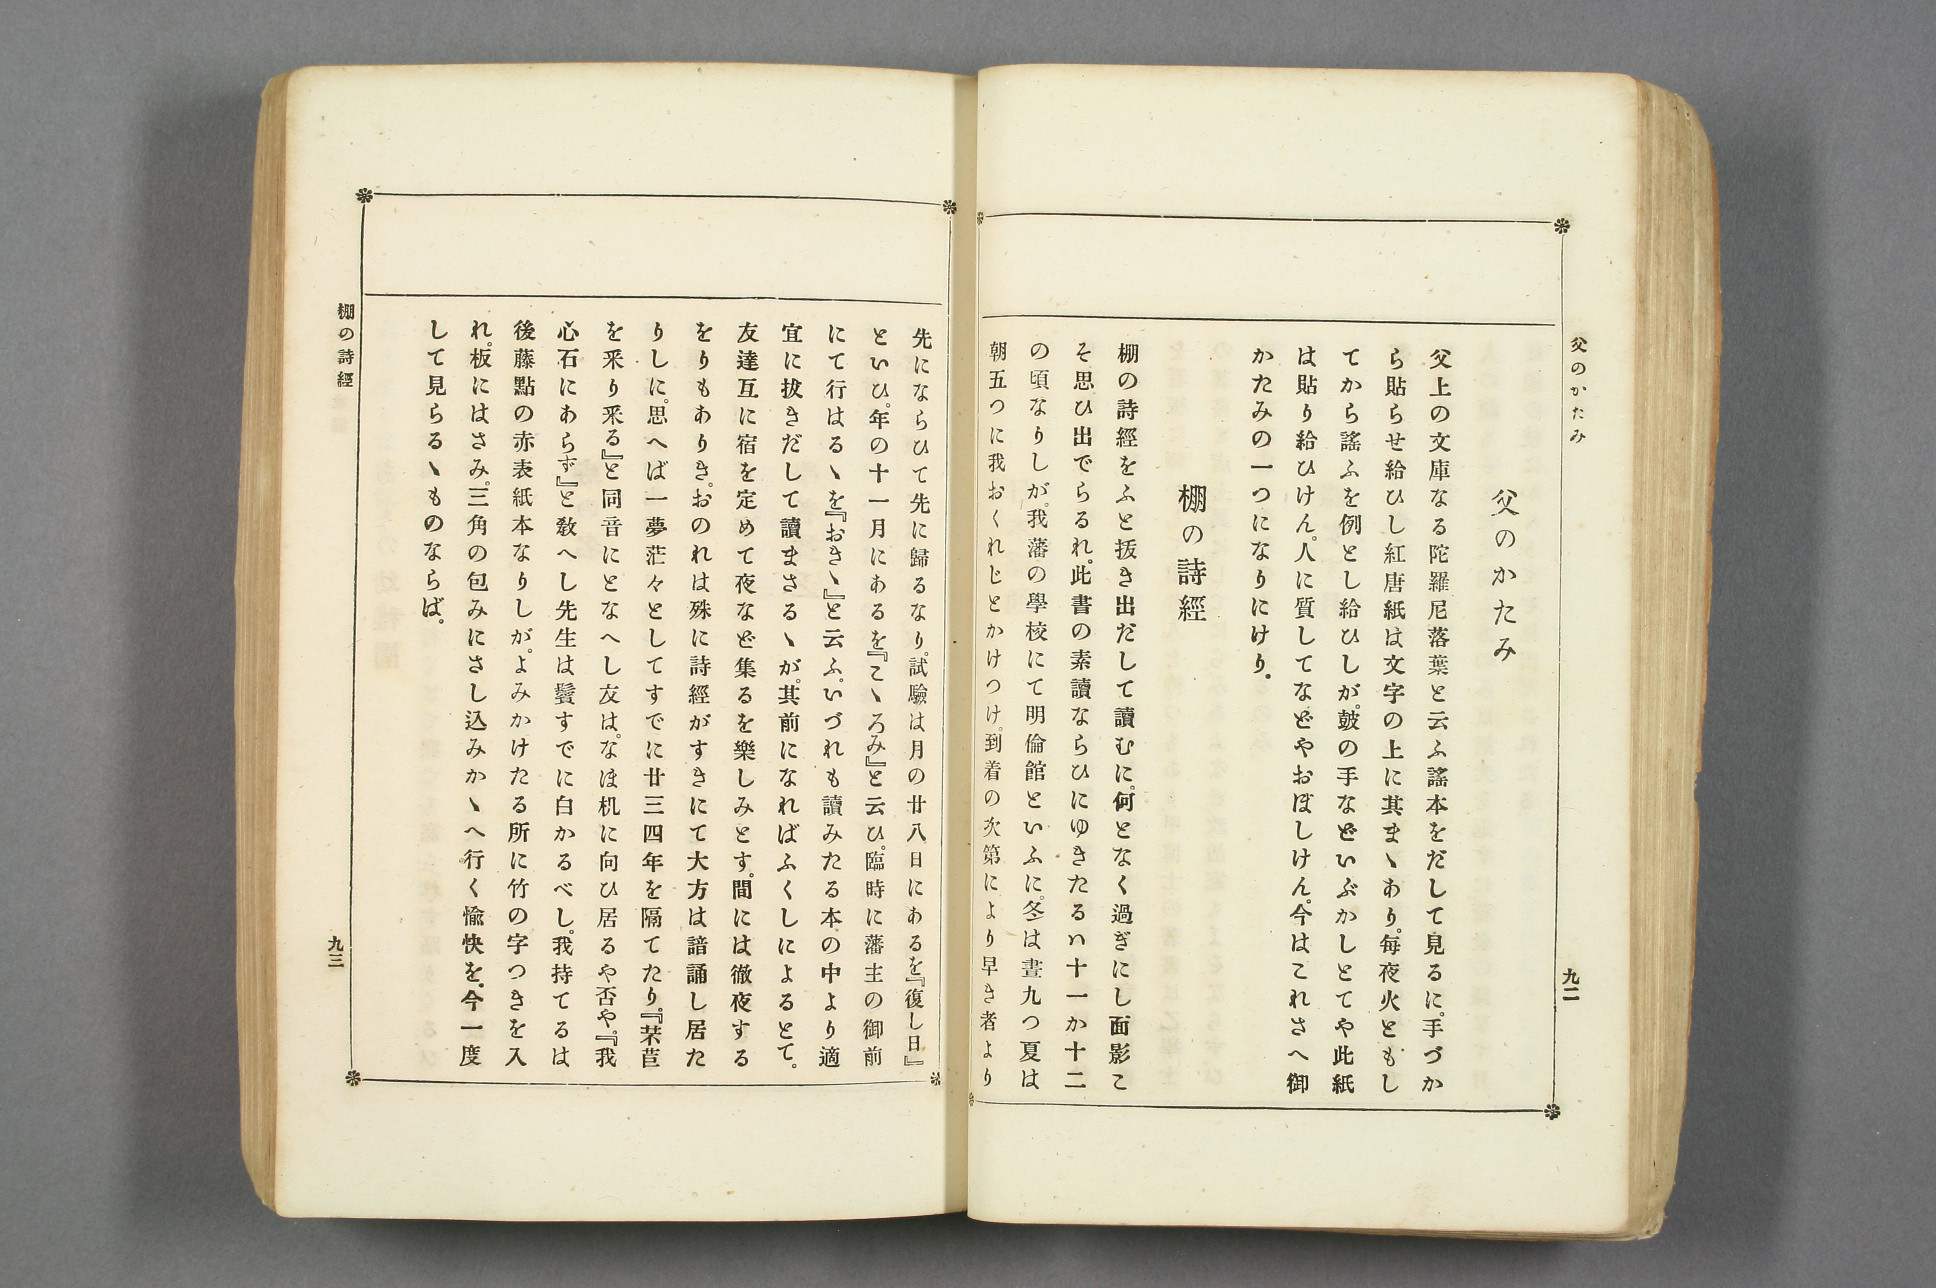 父のかたみ
九二
父のかたみ
父上の文庫なる陀羅尼落葉と云ふ謠本をだして見るに。手づか
ら貼らせ給ひし紅唐紙は文字の上に其まゝあり。毎夜火ともし
てから謠ふを例とし給ひしが。皷の手などいぶかしとてや此紙
は貼り給ひけん。人に質してなどやおぼしけん。今はこれさへ御
かたみの一つになりにけり。
棚の詩經
棚の詩經をふと拔き出だして讀むに。何となく過ぎにし面影こ
そ思ひ出でらるれ。此書の素讀ならひにゆきたるハ十一か十二
の頃なりしが。我藩の學校にて明倫館といふに。冬は晝九つ夏は
朝五つに我おくれじとかけつけ。到着の次第により早き者より
先にならひて先に歸るなり。試驗は月の廿八日にあるを『復し日』
といひ。年の十一月にあるを『こゝろみ』と云ひ。臨時に藩主の御前
にて行はるゝを『おきゝ』と云ふ。いづれも讀みたる本の中より適
宜に拔きだして讀まさるゝが。其前になればふくしによるとて。
友達互に宿を定めて夜など集るを樂しみとす。間には徹夜する
をりもありき。おのれは殊に詩經がすきにて大方は諳誦し居た
りしに。思へば一夢茫々としてすでに廿三四年を隔てたり。『芣苢
を釆り釆る』と同音にとなへし友は。なほ机に向ひ居るや否や。『我
心石にあらず』と敎へし先生は鬢すでに白かるべし。我持てるは
後藤點の赤表紙本なりしが。よみかけたる所に竹の字つきを入
れ。板にはさみ。三角の包みにさし込みかゝへ行く愉快を。今一度
して見らるゝものならば。
棚の詩經
九三